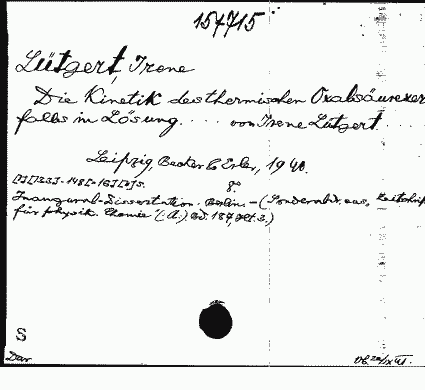 154715
Lützert, Irene
Die Kinetik des thermischen Oxalsäurezer
falls in Lösung. .... von Irene Lützert.
Leipzig, Becker & Erler, 1940.
8°
Inaugural-Dissertation. Berlin. - (Sonderabdr. aus, Zeitschrift
für physik. Chemie (A.) Bd. 187, Hft. 3.)
S
Dar